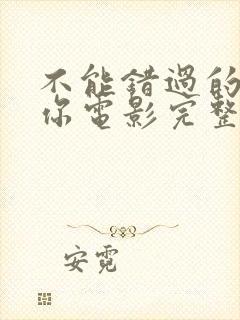 不能错過的
你電影完整
安霓